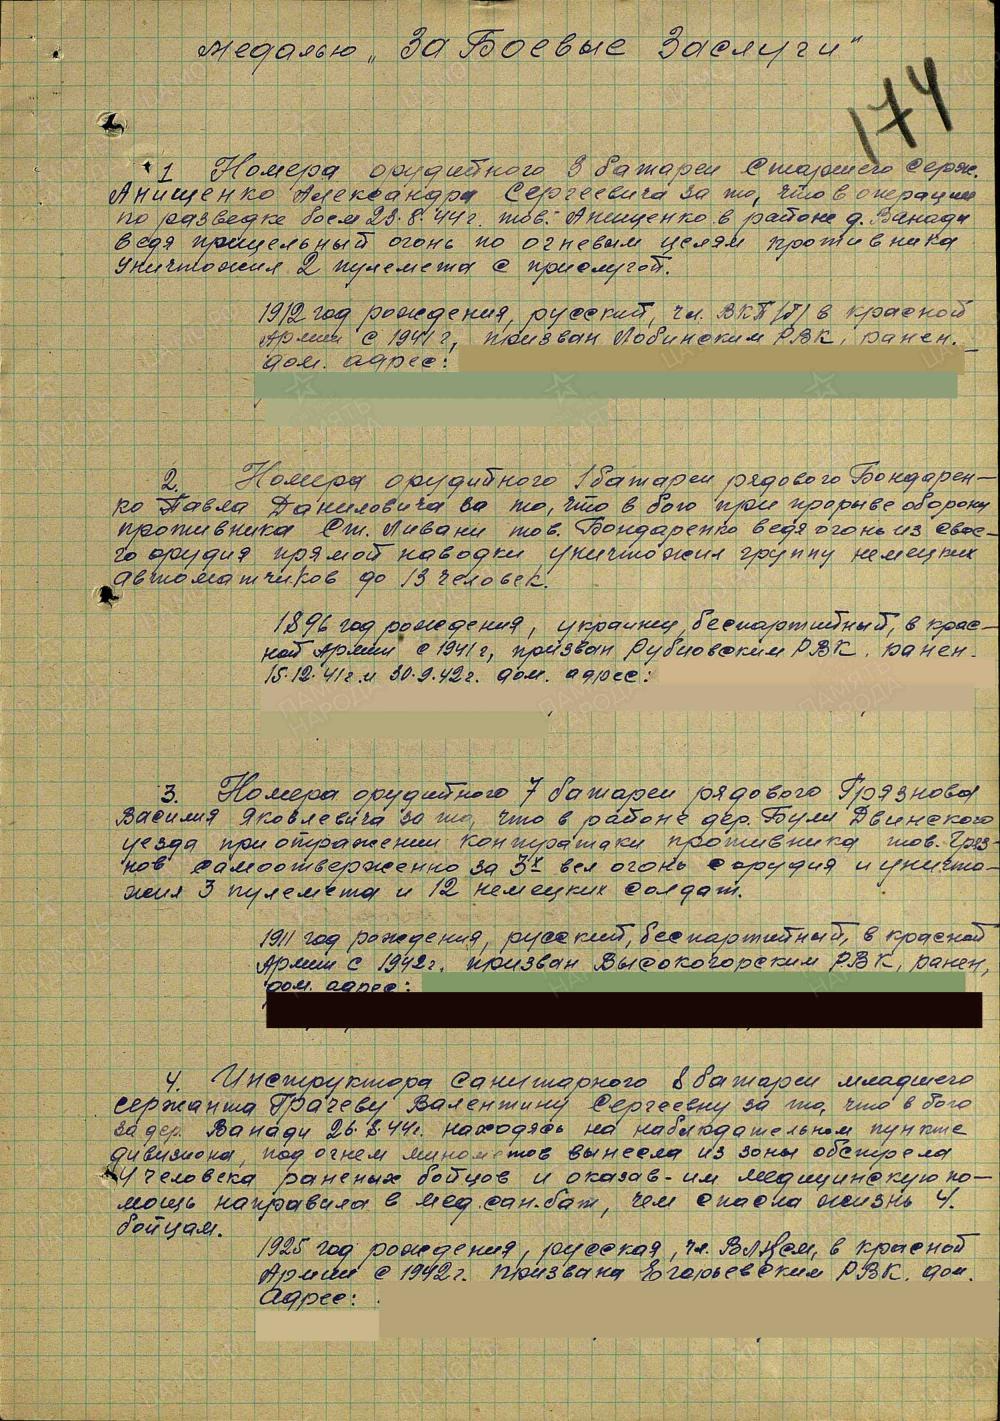 медалью „За Боевые Заслуги"
174
1 Номера орудийного 3 батареи Старшего серж.
Анищенко Александра Сергеевича за то, что в операции
по разведке боем 23.8.44г. тов. Анищенко в районе д. Ванади
ведя прицельный огонь по огневым целям противника
уничтожил 2 пулемета с прислугой.
1912 год рождения, русский, чл. ВКП/б/ в красной
Армии с 1941 г, призван Лобинским РВК, ранен.
дом. адрес:
2. Номера орудийного 1 батареи рядового Бондарен-
ко Павла Даниловича за то, что в бою при прорыве обороны
противника Ст. Ливани тов. Бондаренко ведя огонь из свое-
го орудия прямой наводки уничтожил группу немецких
автоматчиков до 13 человек.
1896 год рождения, украинец, беспартийный, в крас-
ной Армии с 1941г, призван Рубцовским РВК. ранен.
15.12.41г. и 30.9.42г. дом. адрес:
3. Номера орудийного 7 батареи рядового Грязнова
Василия Яковлевича за то, что в районе дер. Були Двинского
уезда при отражении контратаки противника тов. Гряз-
нов самоотверженно за 3х вел огонь с орудия и уничто-
жил 3 пулемета и 12 немецких солдат.
1911 год рождения, русский, беспартийный, в красной
Армии с 1942г. призван Высокогорским РВК, ранен,
дом. адрес:
4. Инструктора санитарного 8 батареи младшего
сержанта Грачеву Валентину Сергеевну за то, что в бою
за дер. Ванади 26.8.44г. находясь на наблюдательном пункте
дивизиона, под огнем минометов вынесла из зоны обстрела
4 человека раненых бойцов и оказав-им медицинскую по-
мощь направила в мед.сан.бат, чем спасла жизнь 4.
бойцам.
1925 год рождения, русская, чл. ВЛКСМ, в красной
Армии с 1942г. призвана Егорьевским РВК. дом.
Адрес: